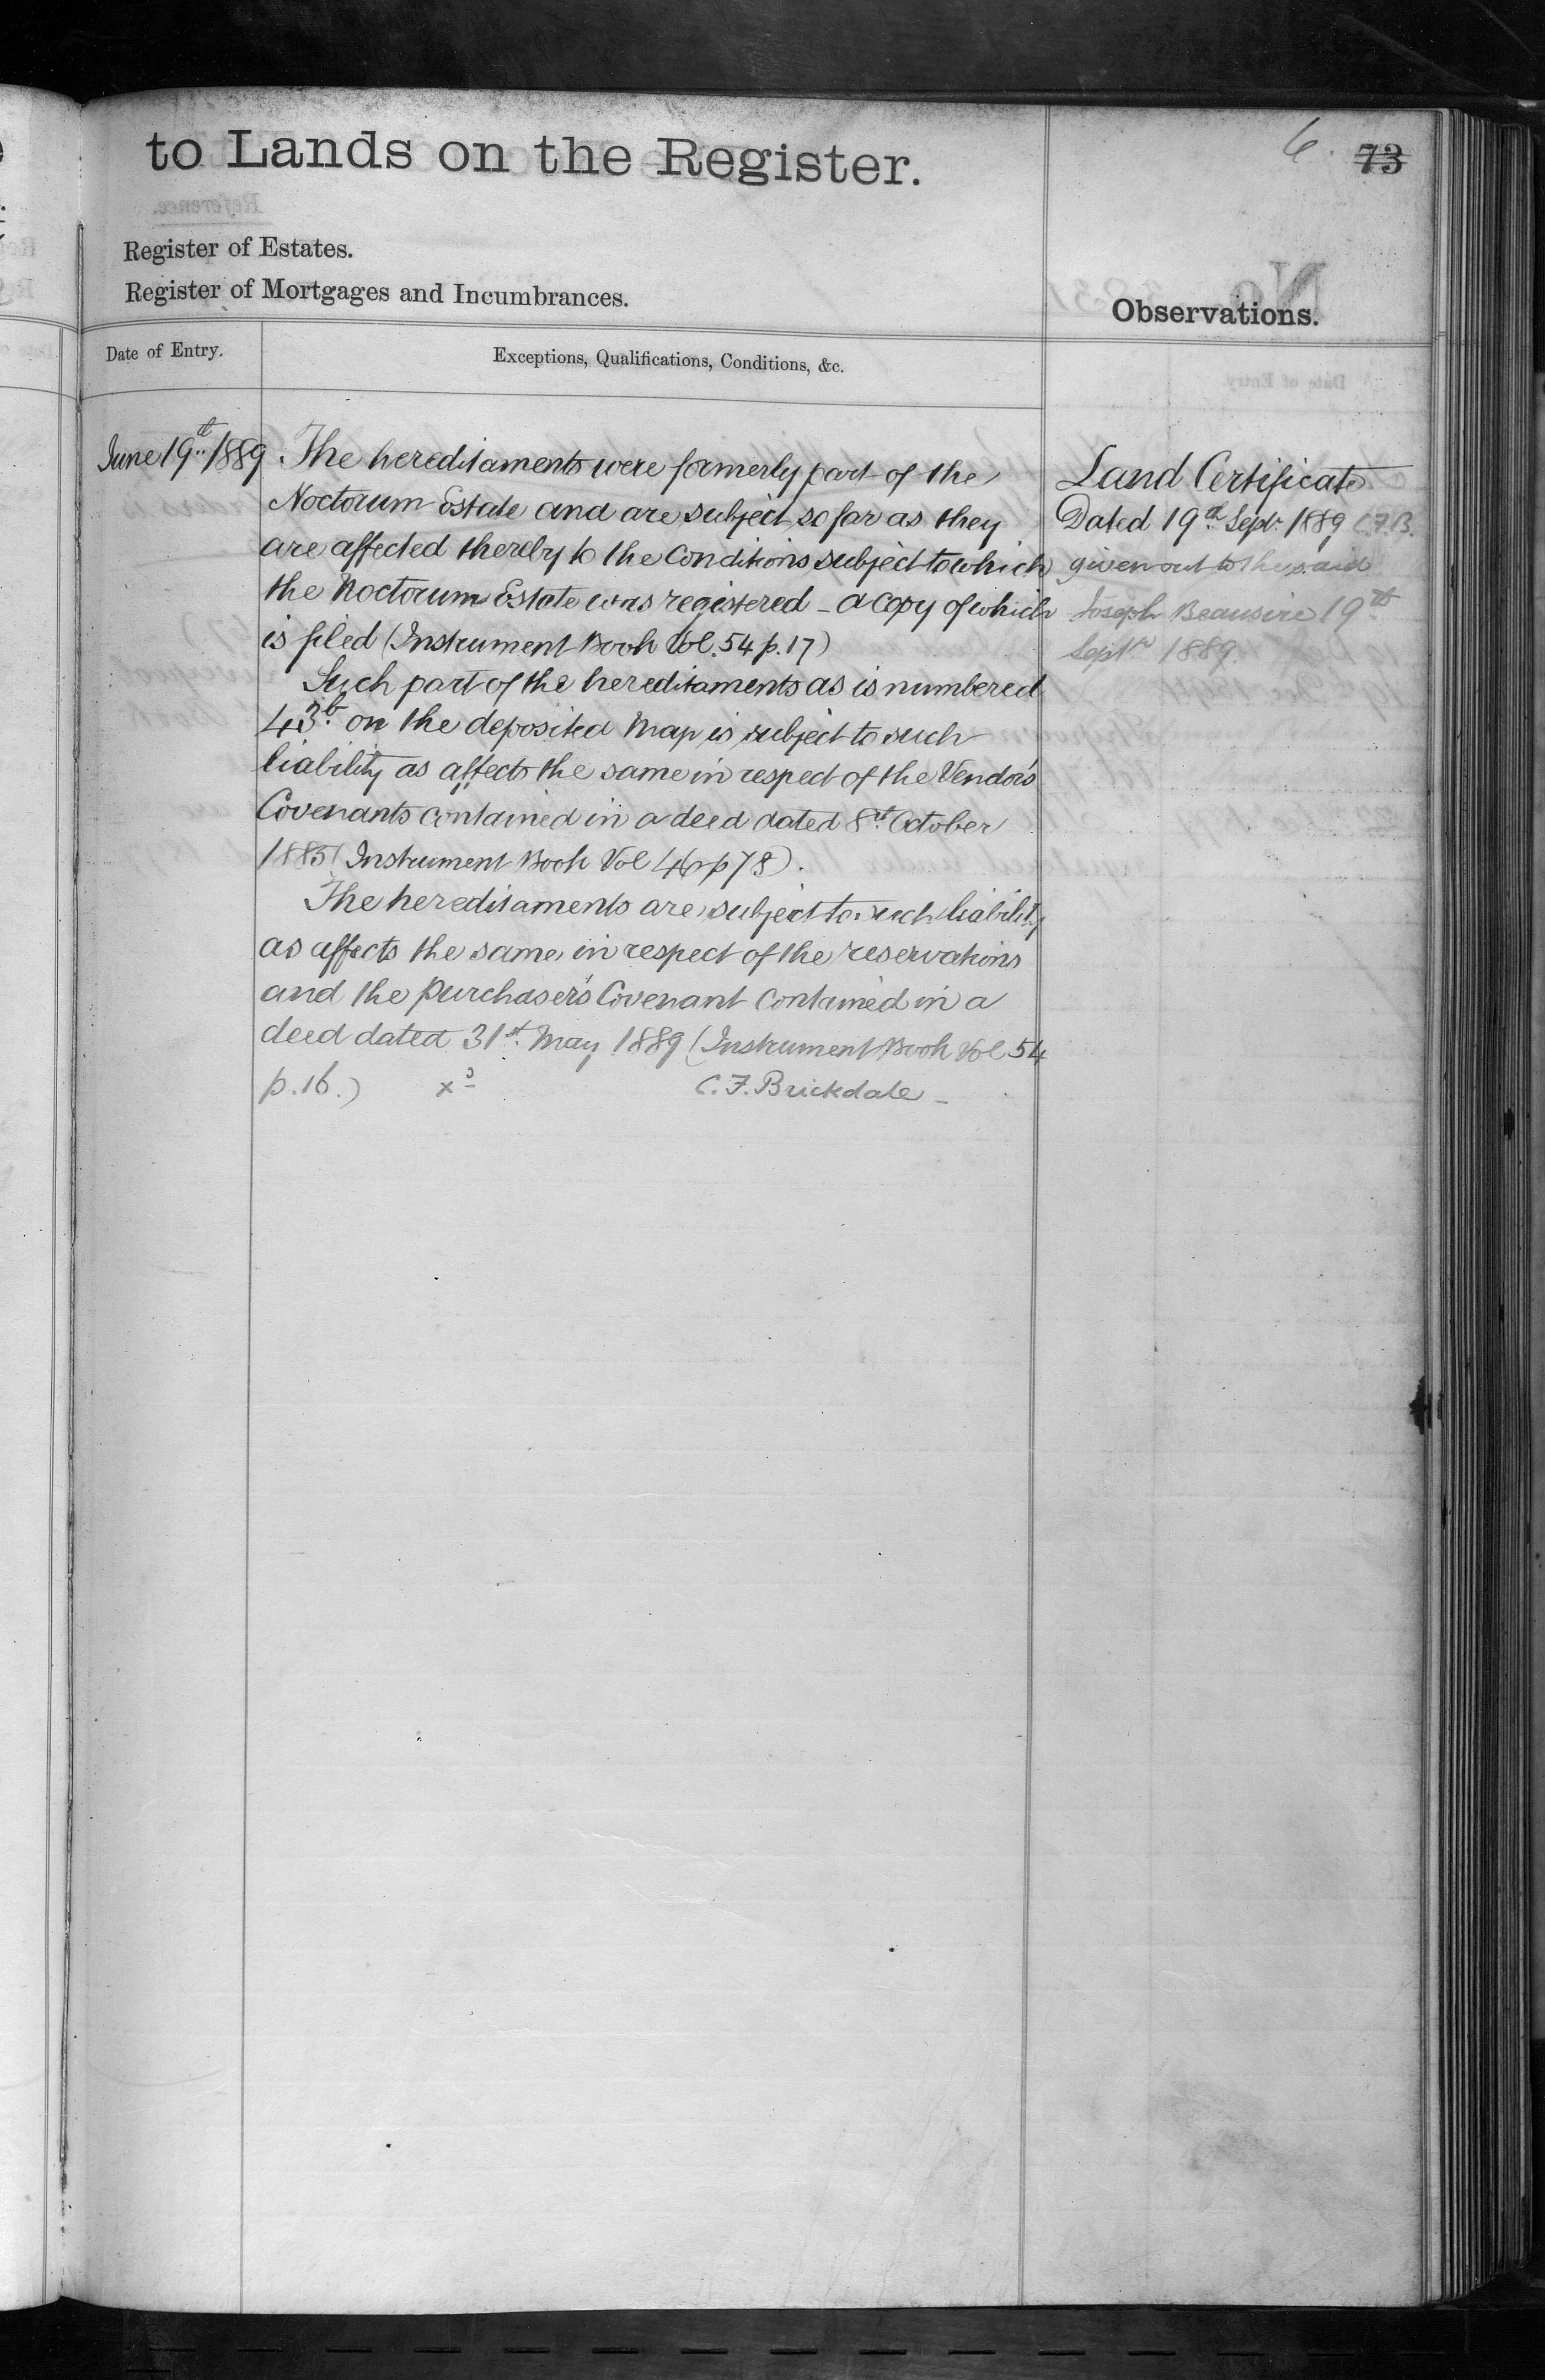 to Lands on the Register.
6. 73
Register of Estates.
Register of Mortgages and Incumbrances.
Observations.
Date of Entry.
Exceptions, Qualifications, Conditions, &c.
June 19th 1889
The hereditaments were formerly part of the
Noctorum Estate and are subject so far as they
are affected thereby to the conditions subject to which
the Noctorum Estate was registered - a copy of which
is filed (Instrument Book Vol. 54 p. 17)
Such part of the hereditaments as is numbered
43b on the deposited Map is subject to such
liability as affects the same in respect of the Vendor's
Covenants contained in a deed dated 8th October
1885 (Instrument Book Vol 46 p 78).
The hereditaments are subject to such liability
as affects the same in respect of the reservations
and the purchaser's Covenant contained in a
deed dated 31st May 1889 (Instrument Book Vol 54
p. 16.)
C. F. Brickdale
Land Certificate
Dated 19th Sept. 1889 C.F.B.
given out to the said
Joseph Beausire 19th
Septr 1889.